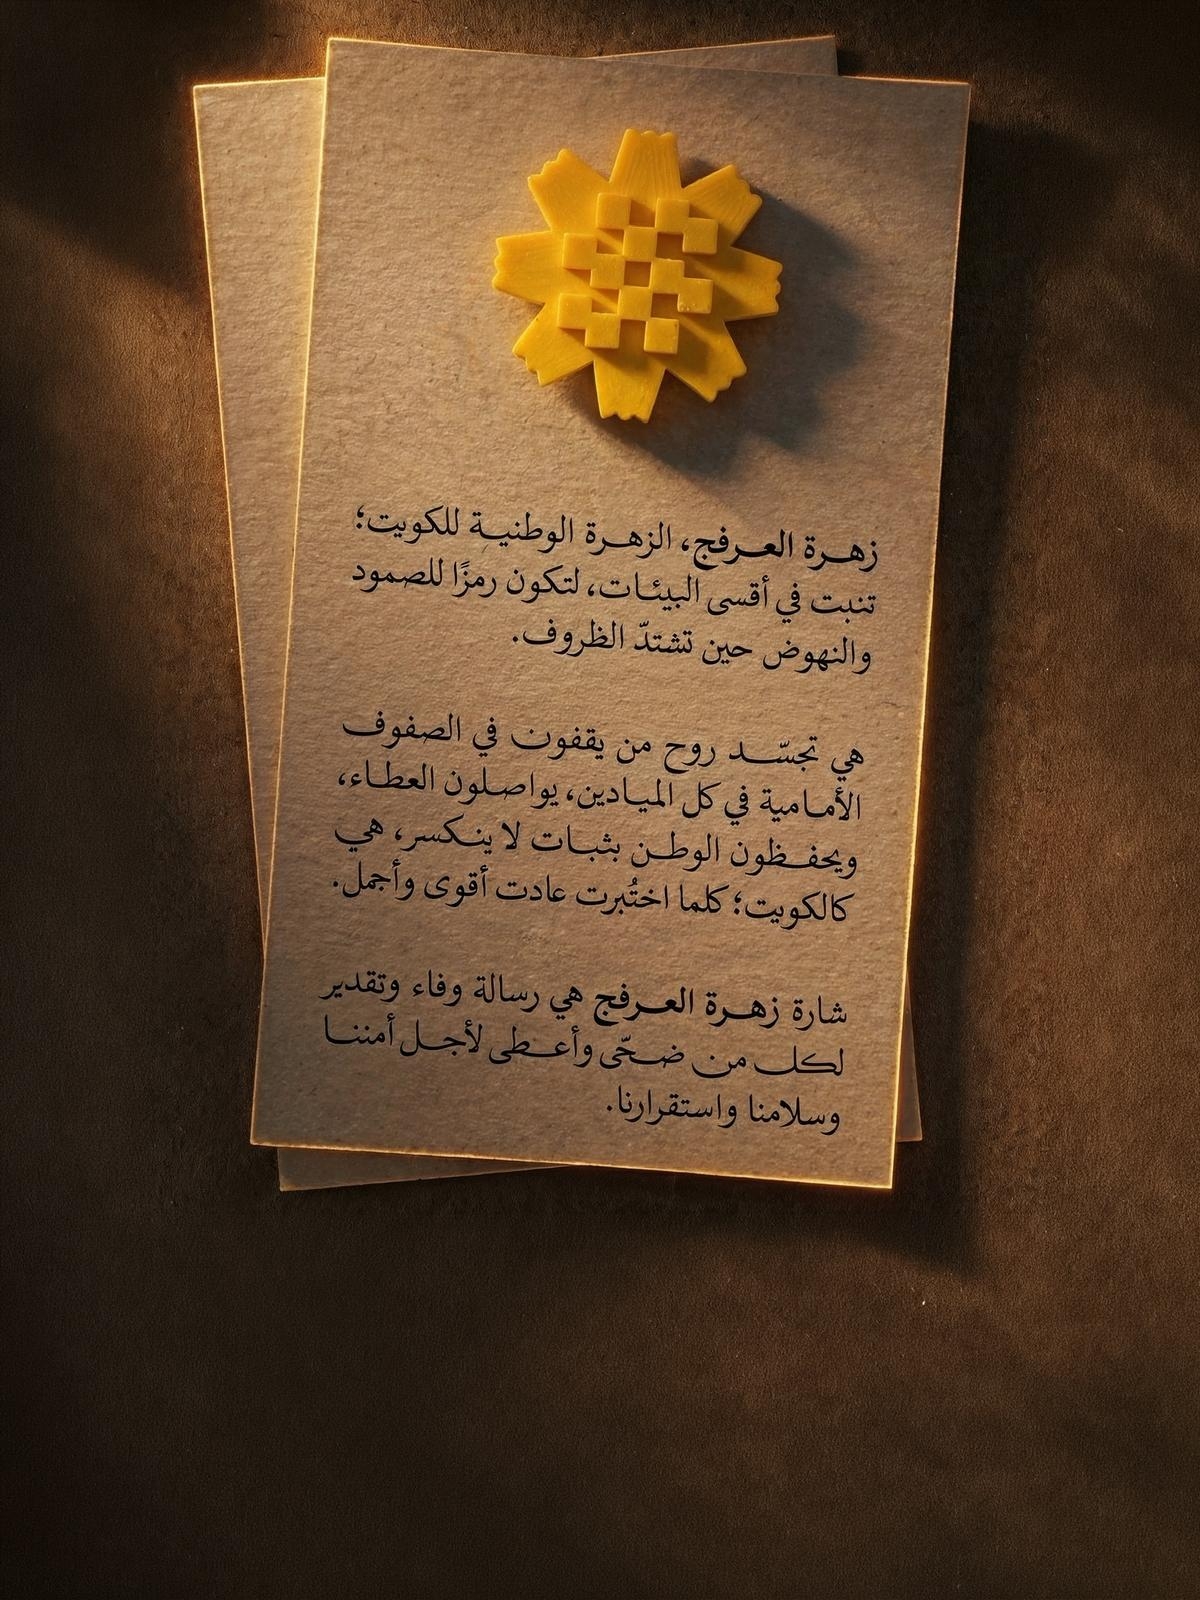 زهرة العرفج، الزهرة الوطنية للكويت؛
تنبت في أقسى البيئات، لتكون رمزًا للصمود
والنهوض حين تشتدّ الظروف.
هي تجسّد روح من يقفون في الصفوف
الأمامية في كل الميادين، يواصلون العطاء،
ويحفظون الوطن بثبات لا ينكسر، هي
كالكويت؛ كلما اختُبرت عادت أقوى وأجمل.
شارة زهرة العرفج هي رسالة وفاء وتقدير
لكل من ضحّى وأعطى لأجل أمننا
وسلامنا واستقرارنا.